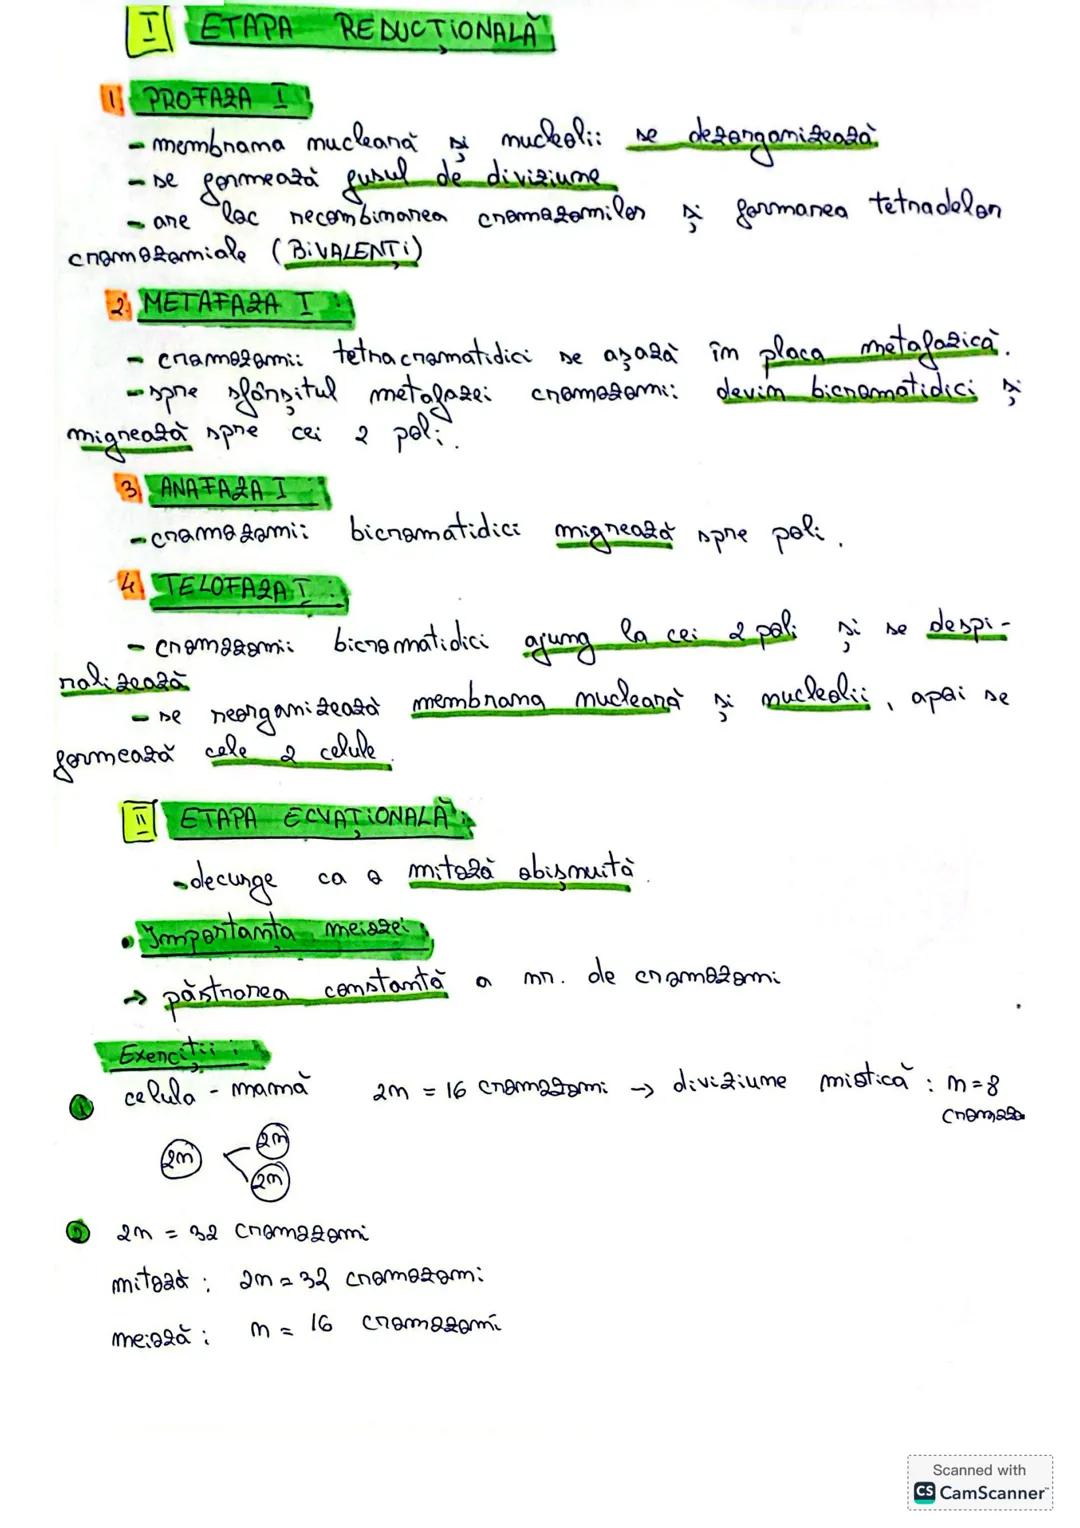 I ETAPA REDUCȚIONALĂ
1 PROFAZA I
- membrana nucleară și nucleolii se dezorganizează
- se formează fusul de diviziune
- are loc recombinarea cromozomilor și formarea tetradelor
cromozomiale (BIVALENȚI)
2 METAFAZA I :
- cromozomii tetracromatidici se așază în placa metafazică.
- spre sfârșitul metafazei cromozomi: devin bicromatidici și
migrează spre cei 2 poli.
3 ANAFAZA I :
- cromozomii bicromatidici migrează spre poli.
4 TELOFAZA I :
- cromozomii bicromatidici ajung la cei 2 poli și se despi-
ralizează
- se reorganizează membrana nucleară și nucleolii, apoi se
formează cele 2 celule.
II ETAPA ECVAȚIONALĂ :
- decurge ca o mitoză obișnuită.
• Importanța meiozei :
→ păstrarea constantă a nr. de cromozomi
Exerciții :
1 celula - mamă 2n = 16 cromozomi → diviziune mistică : n = 8
cromozo
2n 2n
2n
2 2n = 32 cromozomi
mitoză : 2n = 32 cromozomi
meioză : n = 16 cromozomi
Scanned with
CS CamScanner